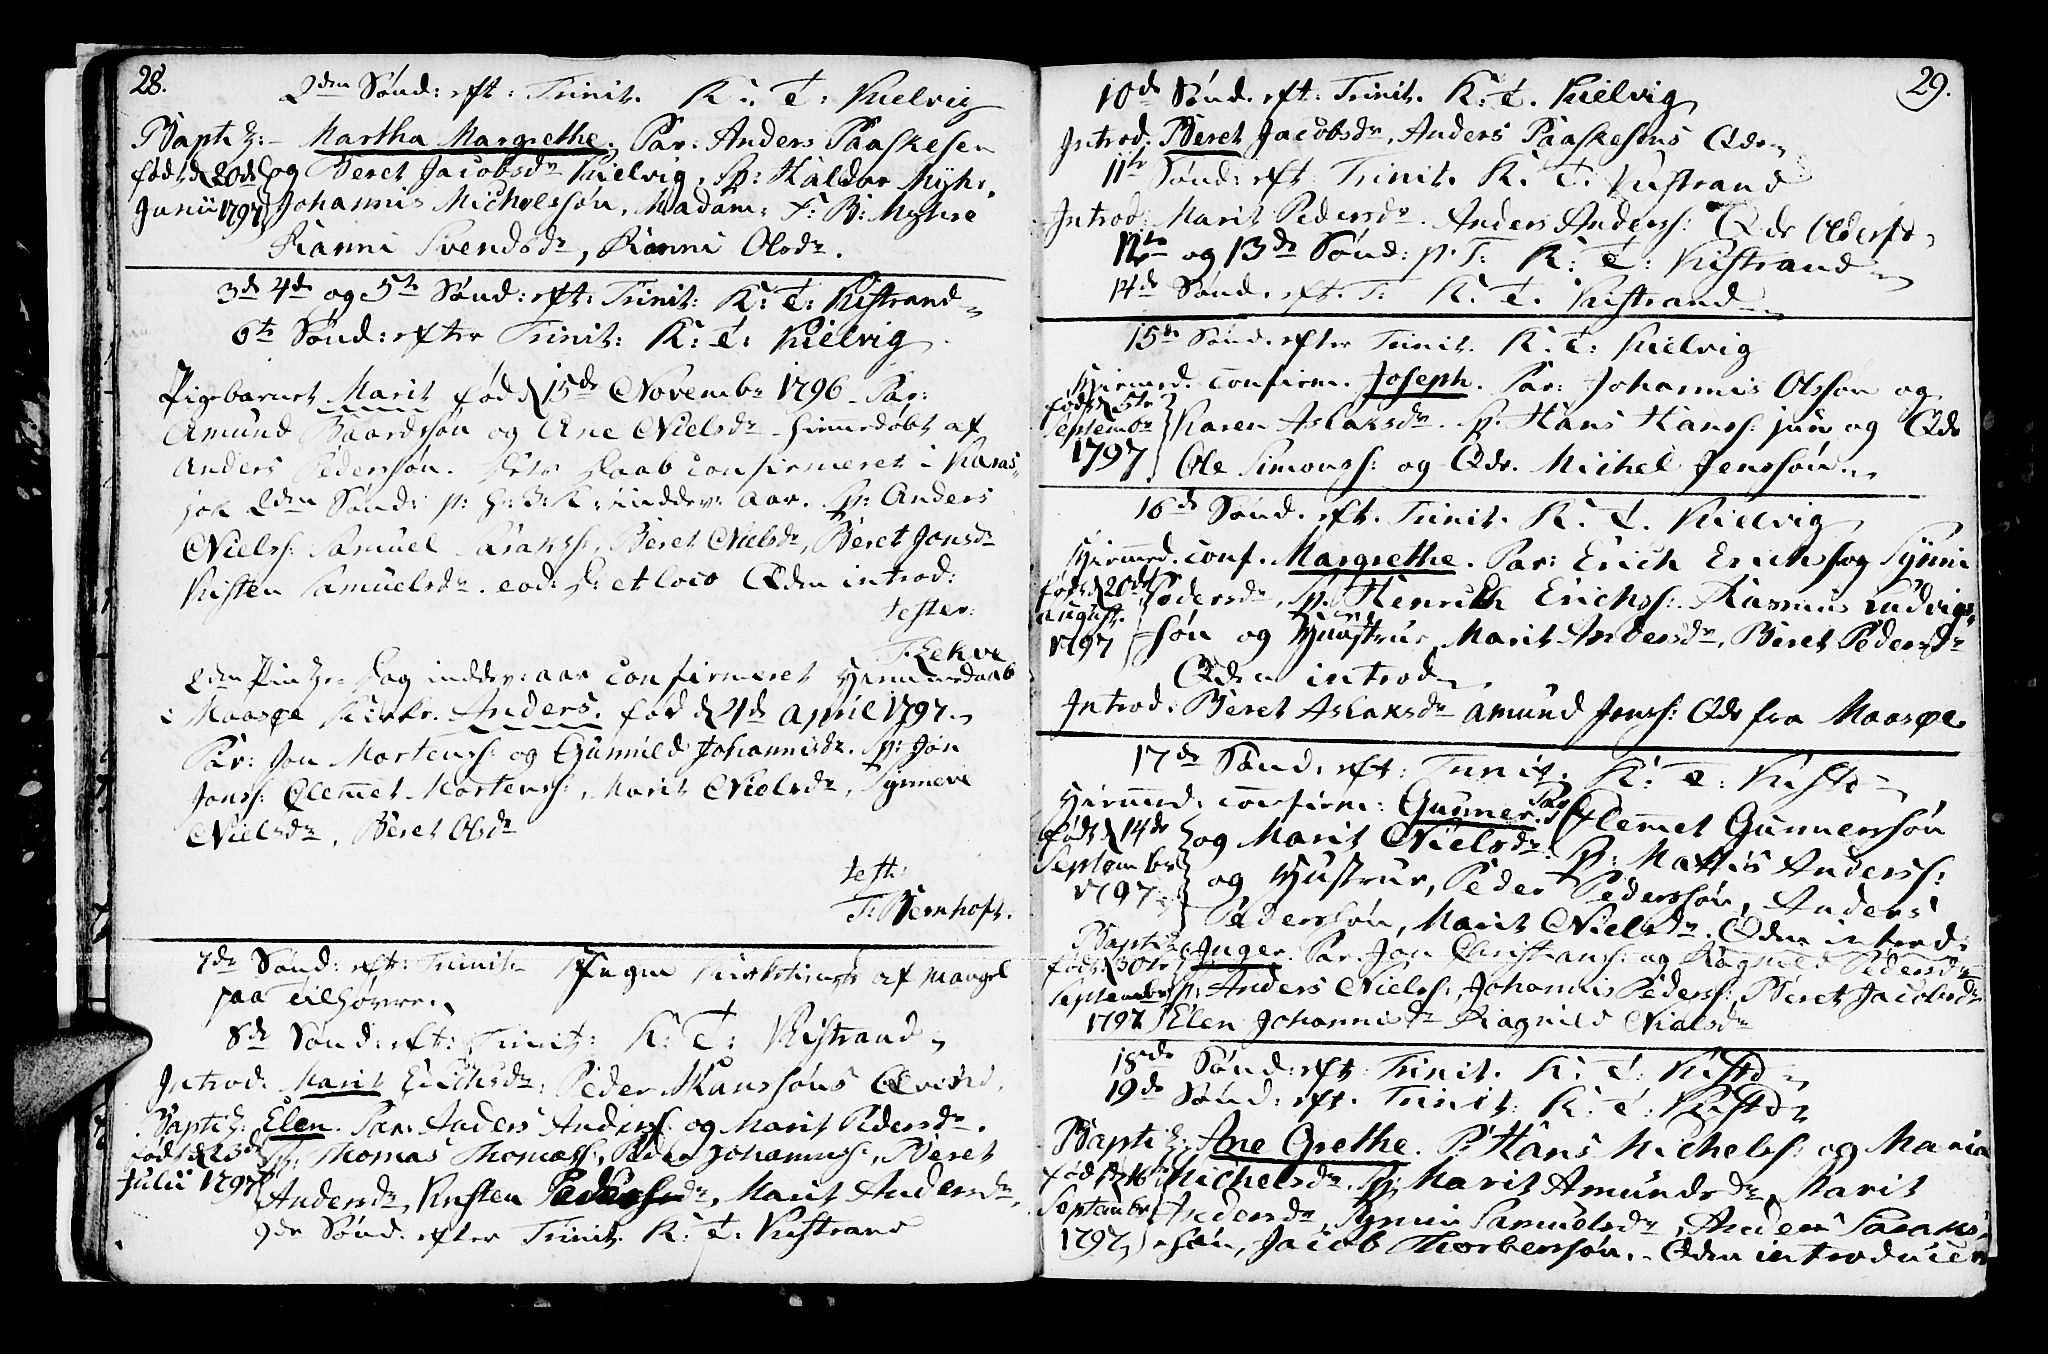 28.
2den Sønd: eft: Trinit. K: T: Kielvig
Baptiz:- Martha Margrethe. Par: Anders Paaskesen
født d 20de og Beret Jacobsdr Kielvig. Sp: Haldor Myhr.
Junii 1797 Johannis Michelssøn, Madam: F: B: Myhre
Ranni Svendsdr, Ranni Olsdr.
3de 4de og 5te Sønd: eft: Trinit: K: T: Kistrand
6te Sønd: efter Trinit: K: T: Kielvig
Pigebarnet Marit fød d 15de Novembr 1796. Par:
Amund Baardssøn og Ane Nielsdr hiemedøbt af
Anders Pedersøn. Dets daab confirmeret i Karas
jok 2den Sønd: p: H: 3: K: inddev: aar. Sp: Anders
Niels: Samuel Saraks:, Beret Nielsdr, Beret Jonsdr
Kisten Samuelsdr. eod: d: et loco Qden introd:
tester:
T: Lekve
2den Pintze Dag inddev: aar confirmeret Hiemmedaab
i Maasøe Kirke. Anders. fød d 4de April 1797.
Par: Jon Mortens: og Gunnild Johannisdr. Sp: Jon
Jons: Clemet Mortens:, Marit Nielsdr, Synnevi
Nielsdr, Beret Olsdr
test:
T: Bernhoft.
7de Sønd: eft: Trinit. Ingen Kirketieneste af Mangel
paa Tilhørere.
8de Sønd: eft: Trinit: K: T: Kistrand
Introd: Marit Erichsdr: Peder Hanssøns Qvinde.
Baptiz: Elen. Par: Anders Anders: og Marit Pedersdr.
født d 23de Sp: Thomas Thomas:, Peder Johannis:, Beret
Julii 1797 Andersdr, Kisten Pedersdr, Marit Andersdr.
9de Sønd: efter Trinit. K: T: Kistrand
29.
10de Sønd. eft: Trinit. K: T. Kielvig
Introd: Beret Jacobsdr, Anders Paaskesens Qde
11te Sønd: eft: Trinit. K: T: Kistrand
Introd: Marit Pedersdr. Anders Anders: Qde Olderfd
12te og 13de Sønd: p. T: K: T: Kistrand
14de Sønd. eft. T: K: T. Kistrand
15de Sønd. efter Trinit. K. T: Kielvig
Hiemed. confirm. Joseph. Par: Johannis Olssøn og
født d 5te Karen Aslaksdr. Sp. Hans Hans: jun og Qde
Septembr Ole Simons: og Qde. Michel Jenssøn.
1797
16de Sønd. eft. Trinit. K. T. Kielvig
Hiemed. conf. Margrethe. Par: Erich Erichs og Synni
født d 20de Pedersdr, Sp. Henrich Erichs:. Rasmus Ludvigs
august. søn og Hustrue, Marit Andersdr, Beret Pedersdr
1797 Qden introd
Introd: Beret Aslaksdr Amund Jons: Qde fra Maasøe
17de Sønd: eft: Trinit. K: T: Kistd
Hiemed: confirm: Gunner. Par Clemet Gunnerssøn
født d 14de og Marit Nielsdr. Sp: Mattis Anders:
Septembr og Hustrue, Peder Pederssøn, Anders
1797. Pederssøn, Marit Nielsdr. Qden introd:
Baptiz: Inger. Par. Jon Christians: og Ragnild Pedersdr
født d 30te Sp: Anders Niels:, Johannis Peders:, Beret Jacobsdr
Septembr Elen Johannisdr Ragnild Nielsdr
1797
18de Sønd: eft: Trinit. K: T: Kistd
19de Sønd: eft. Trinit: K: T: Kistd
Baptiz: Ane Grethe. P: Hans Michels: og Maria
fød d 16 Michelsdr. Sp: Marit Amundsdr, Marit
Septembr Andersdr, Synni Samuelsdr, Anders Saraks
1797 søn, Jacob Thorberssøn. Qden introducer